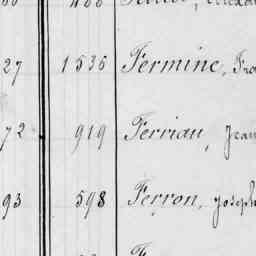 27 1536 Fermine,
72 919 Ferriau, Jean
93 598 Ferron, Joseph